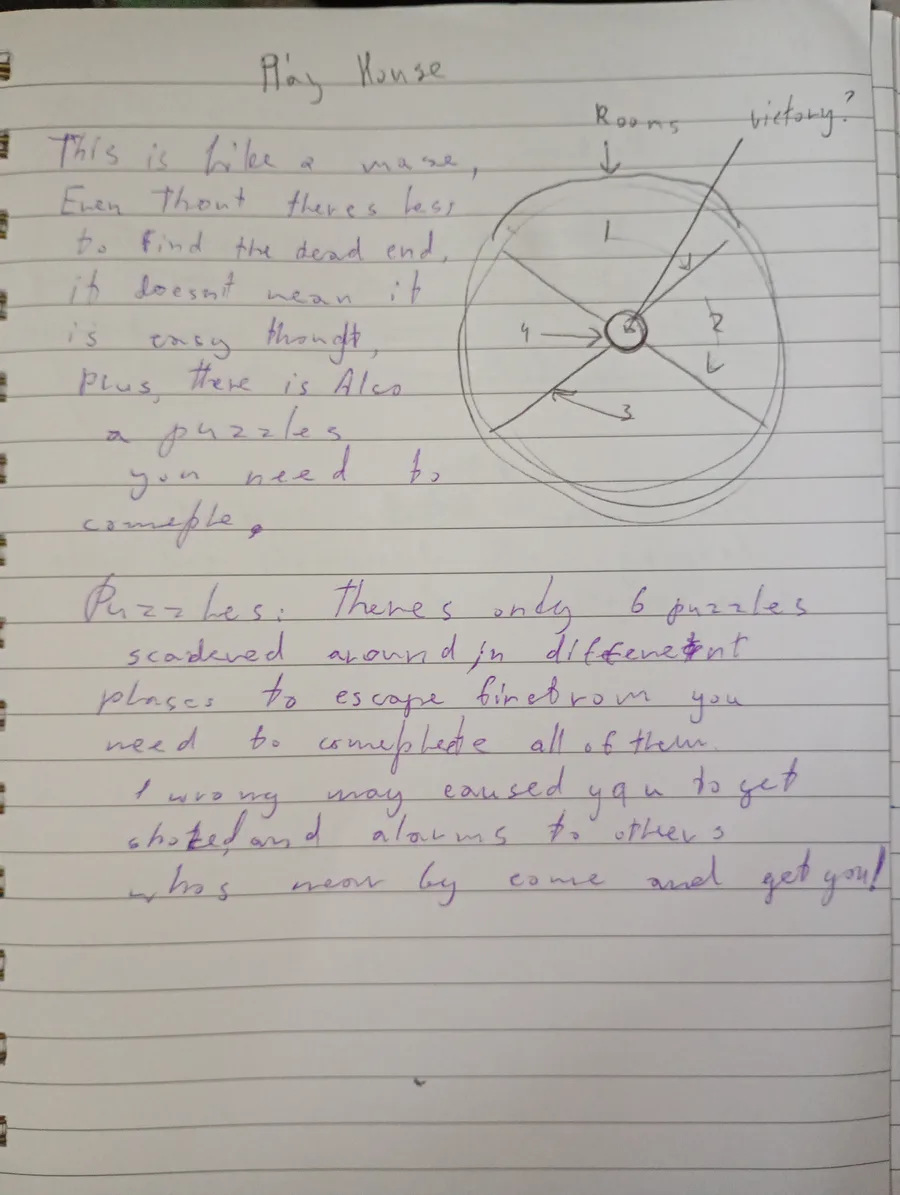 Play House
Rooms victory?
This is like a maze,
Even Thout theres less
to find the dead end,
it doesnt mean it
is easy thought,
plus, there is Also
a puzzles
you need to
comeple.
1
2
3
4
Puzzles: theres only 6 puzzles
scadered around in differetnt
plases to escape
need to comepleete all of them.
1 wrong may caused you to get
shoted, and alarms to others
whos near by come and get you!